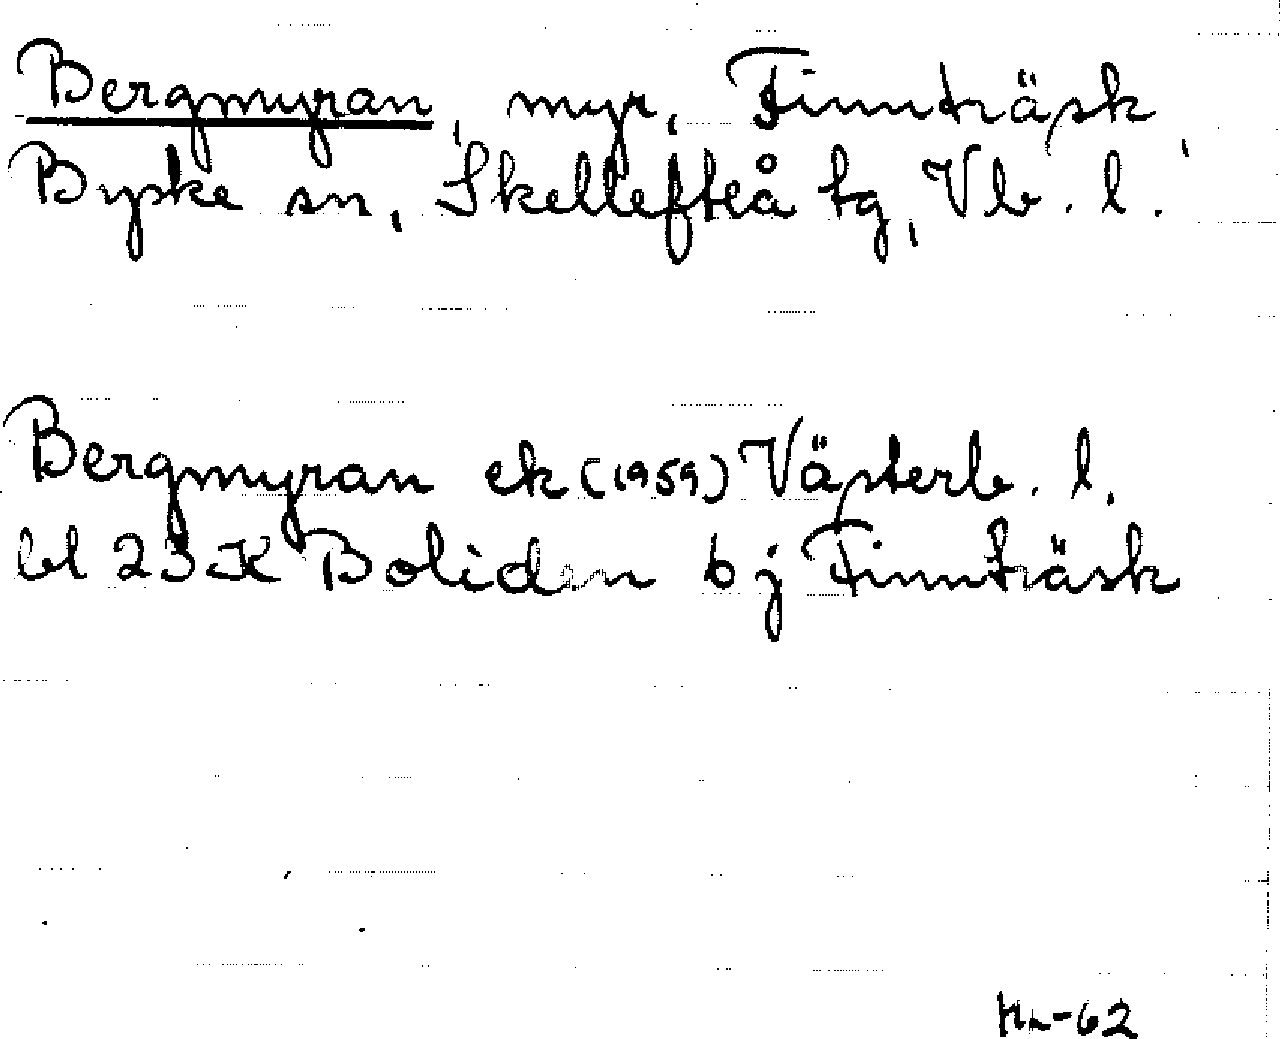 Bergmyran, myr, Finnträsk,
Byske sn, Skellefteå tg, Vb. l.
Bergmyran ek (1959) Västerb. l.
bl 23 K Boliden bj Finnträsk